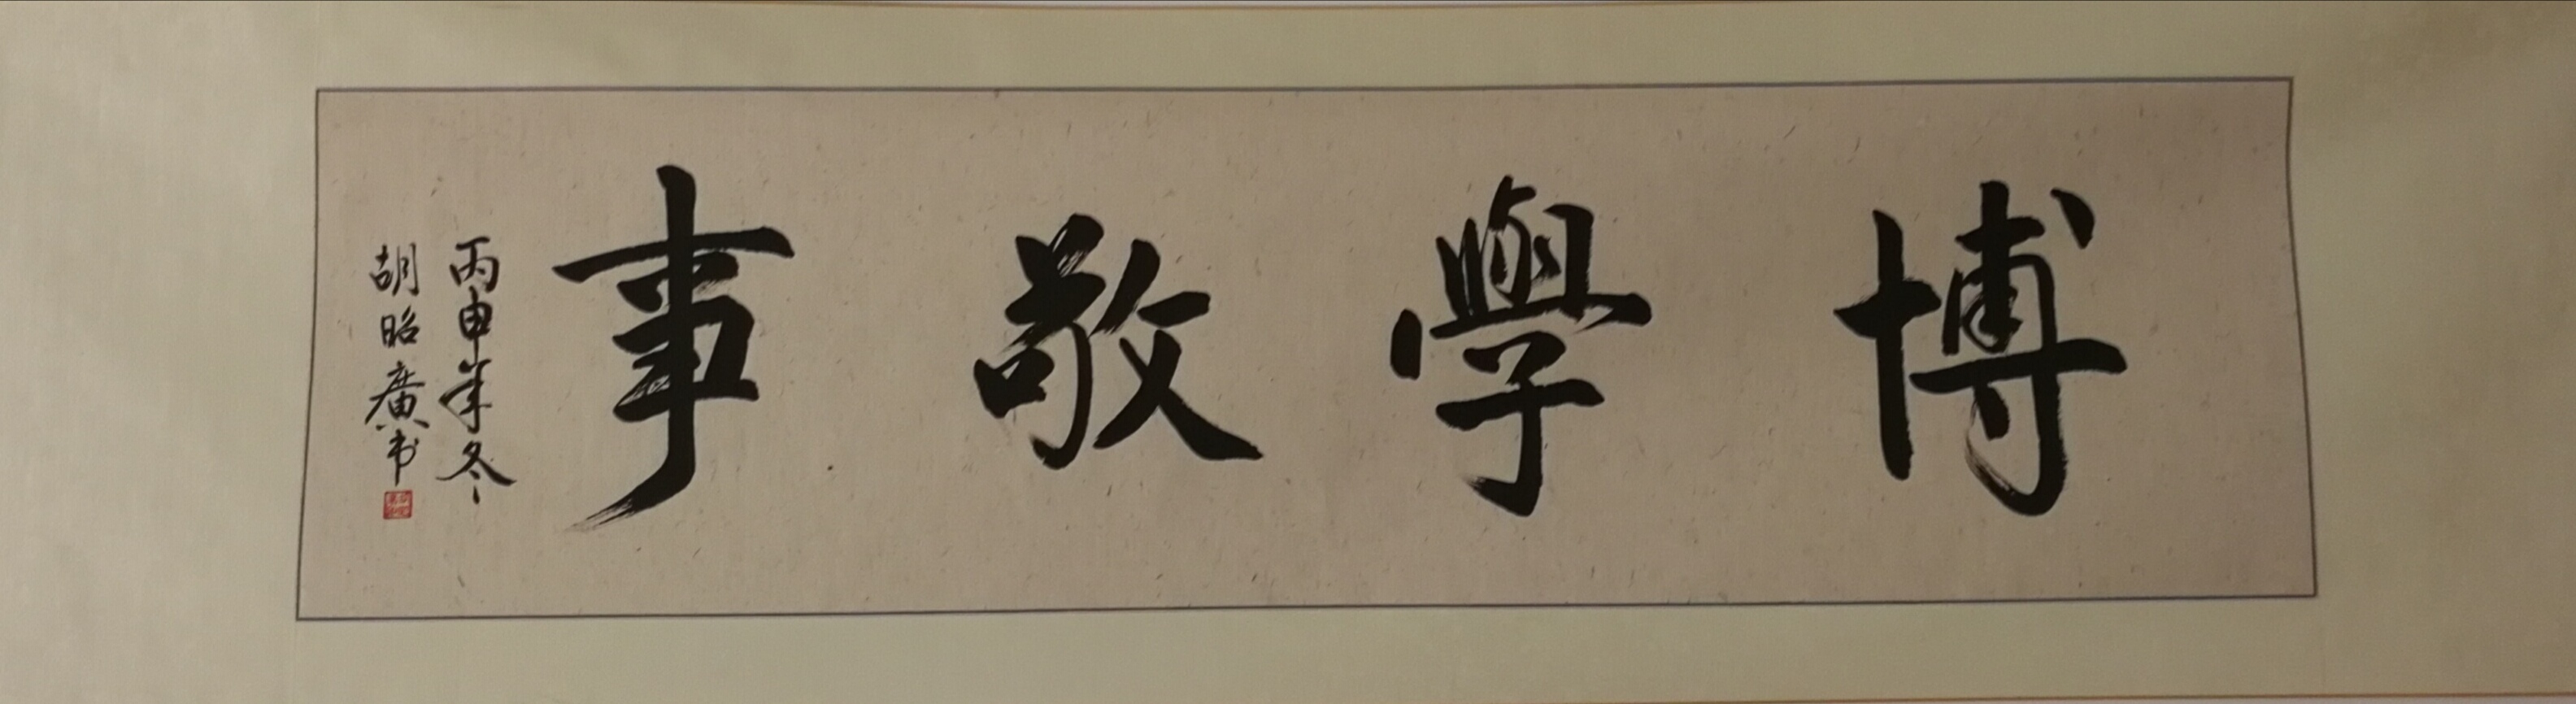 博學敬事
丙申年冬
胡昭廣书